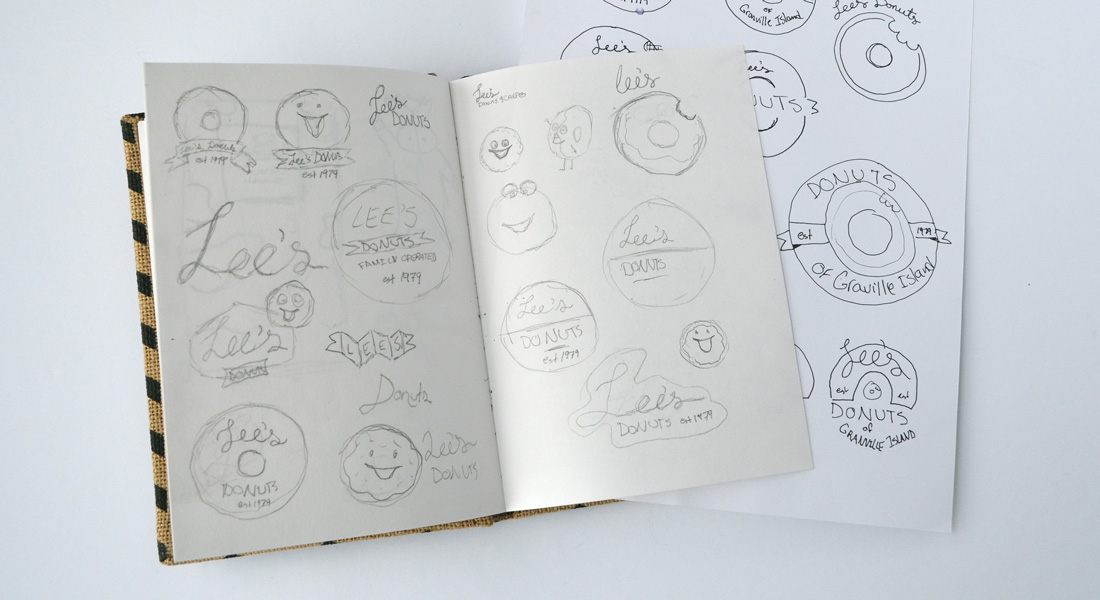 Lee's Donuts
est 1979
Lee's Donuts
est 1979
Lee's
DONUTS
Lee's
LEE'S
DONUTS
FAMILY OPERATED
est 1979
Lee's
DONUTS
LEE'S
Donuts
Lee's
DONUTS
est 1979
Lee's
DONUTS
Lee's
DONUTS
lee's
Lee's
DONUTS
Lee's
DONUTS
est 1979
Lee's
DONUTS est 1979
1979
of
Granville Island
Lee's Donuts
Lee's
DONUTS
est 1979
of Graville Island
Lee's
est est
DONUTS
of
GRANVILLE ISLAND